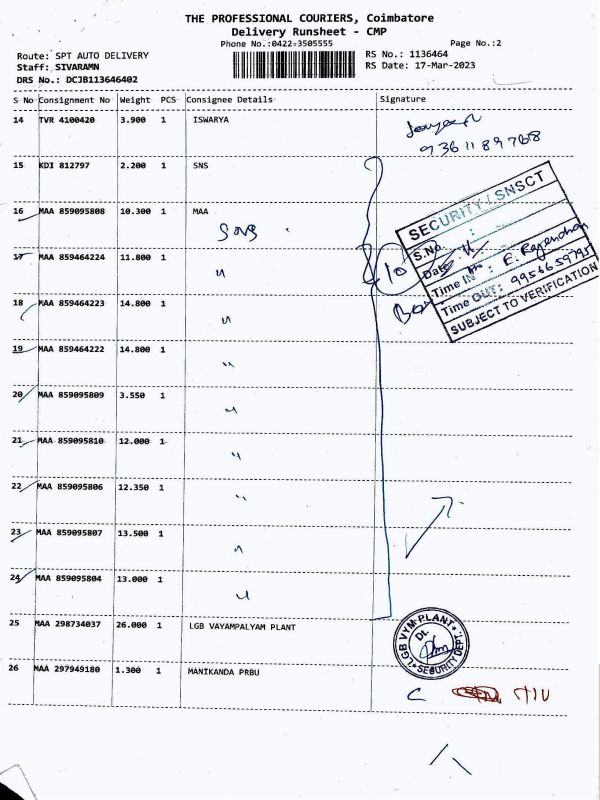 THE PROFESSIONAL COURIERS, Coimbatore
Delivery Runsheet - CMP
Phone No.:0422-3505555 Page No.:2
Route: SPT AUTO DELIVERY RS No.: 1136464
Staff: SIVARAMN RS Date: 17-Mar-2023
DRS No.: DCJB113646402
S No Consignment No Weight PCS Consignee Details Signature
14 TVR 4100420 3.900 1 ISWARYA
9361189768
15 KDI 812797 2.200 1 SNS
16 MAA 859095808 10.300 1 MAA
SNS
17 MAA 859464224 11.800 1 "
18 MAA 859464223 14.800 1 "
19 MAA 859464222 14.800 1 "
20 MAA 859095809 3.550 1 "
21 MAA 859095810 12.000 1 "
22 MAA 859095806 12.350 1 "
23 MAA 859095807 13.500 1 "
24 MAA 859095804 13.000 1 "
10
Box
SECURITY / SNSCT
S.No. :
Date :
Time IN : E. Rajendran
Time OUT :
SUBJECT TO VERIFICATION
25 MAA 298734037 26.000 1 LGB VAYAMPALYAM PLANT
LGB VYM PLANT
SECURITY DEPT.
26 MAA 297949180 1.300 1 MANIKANDA PRBU